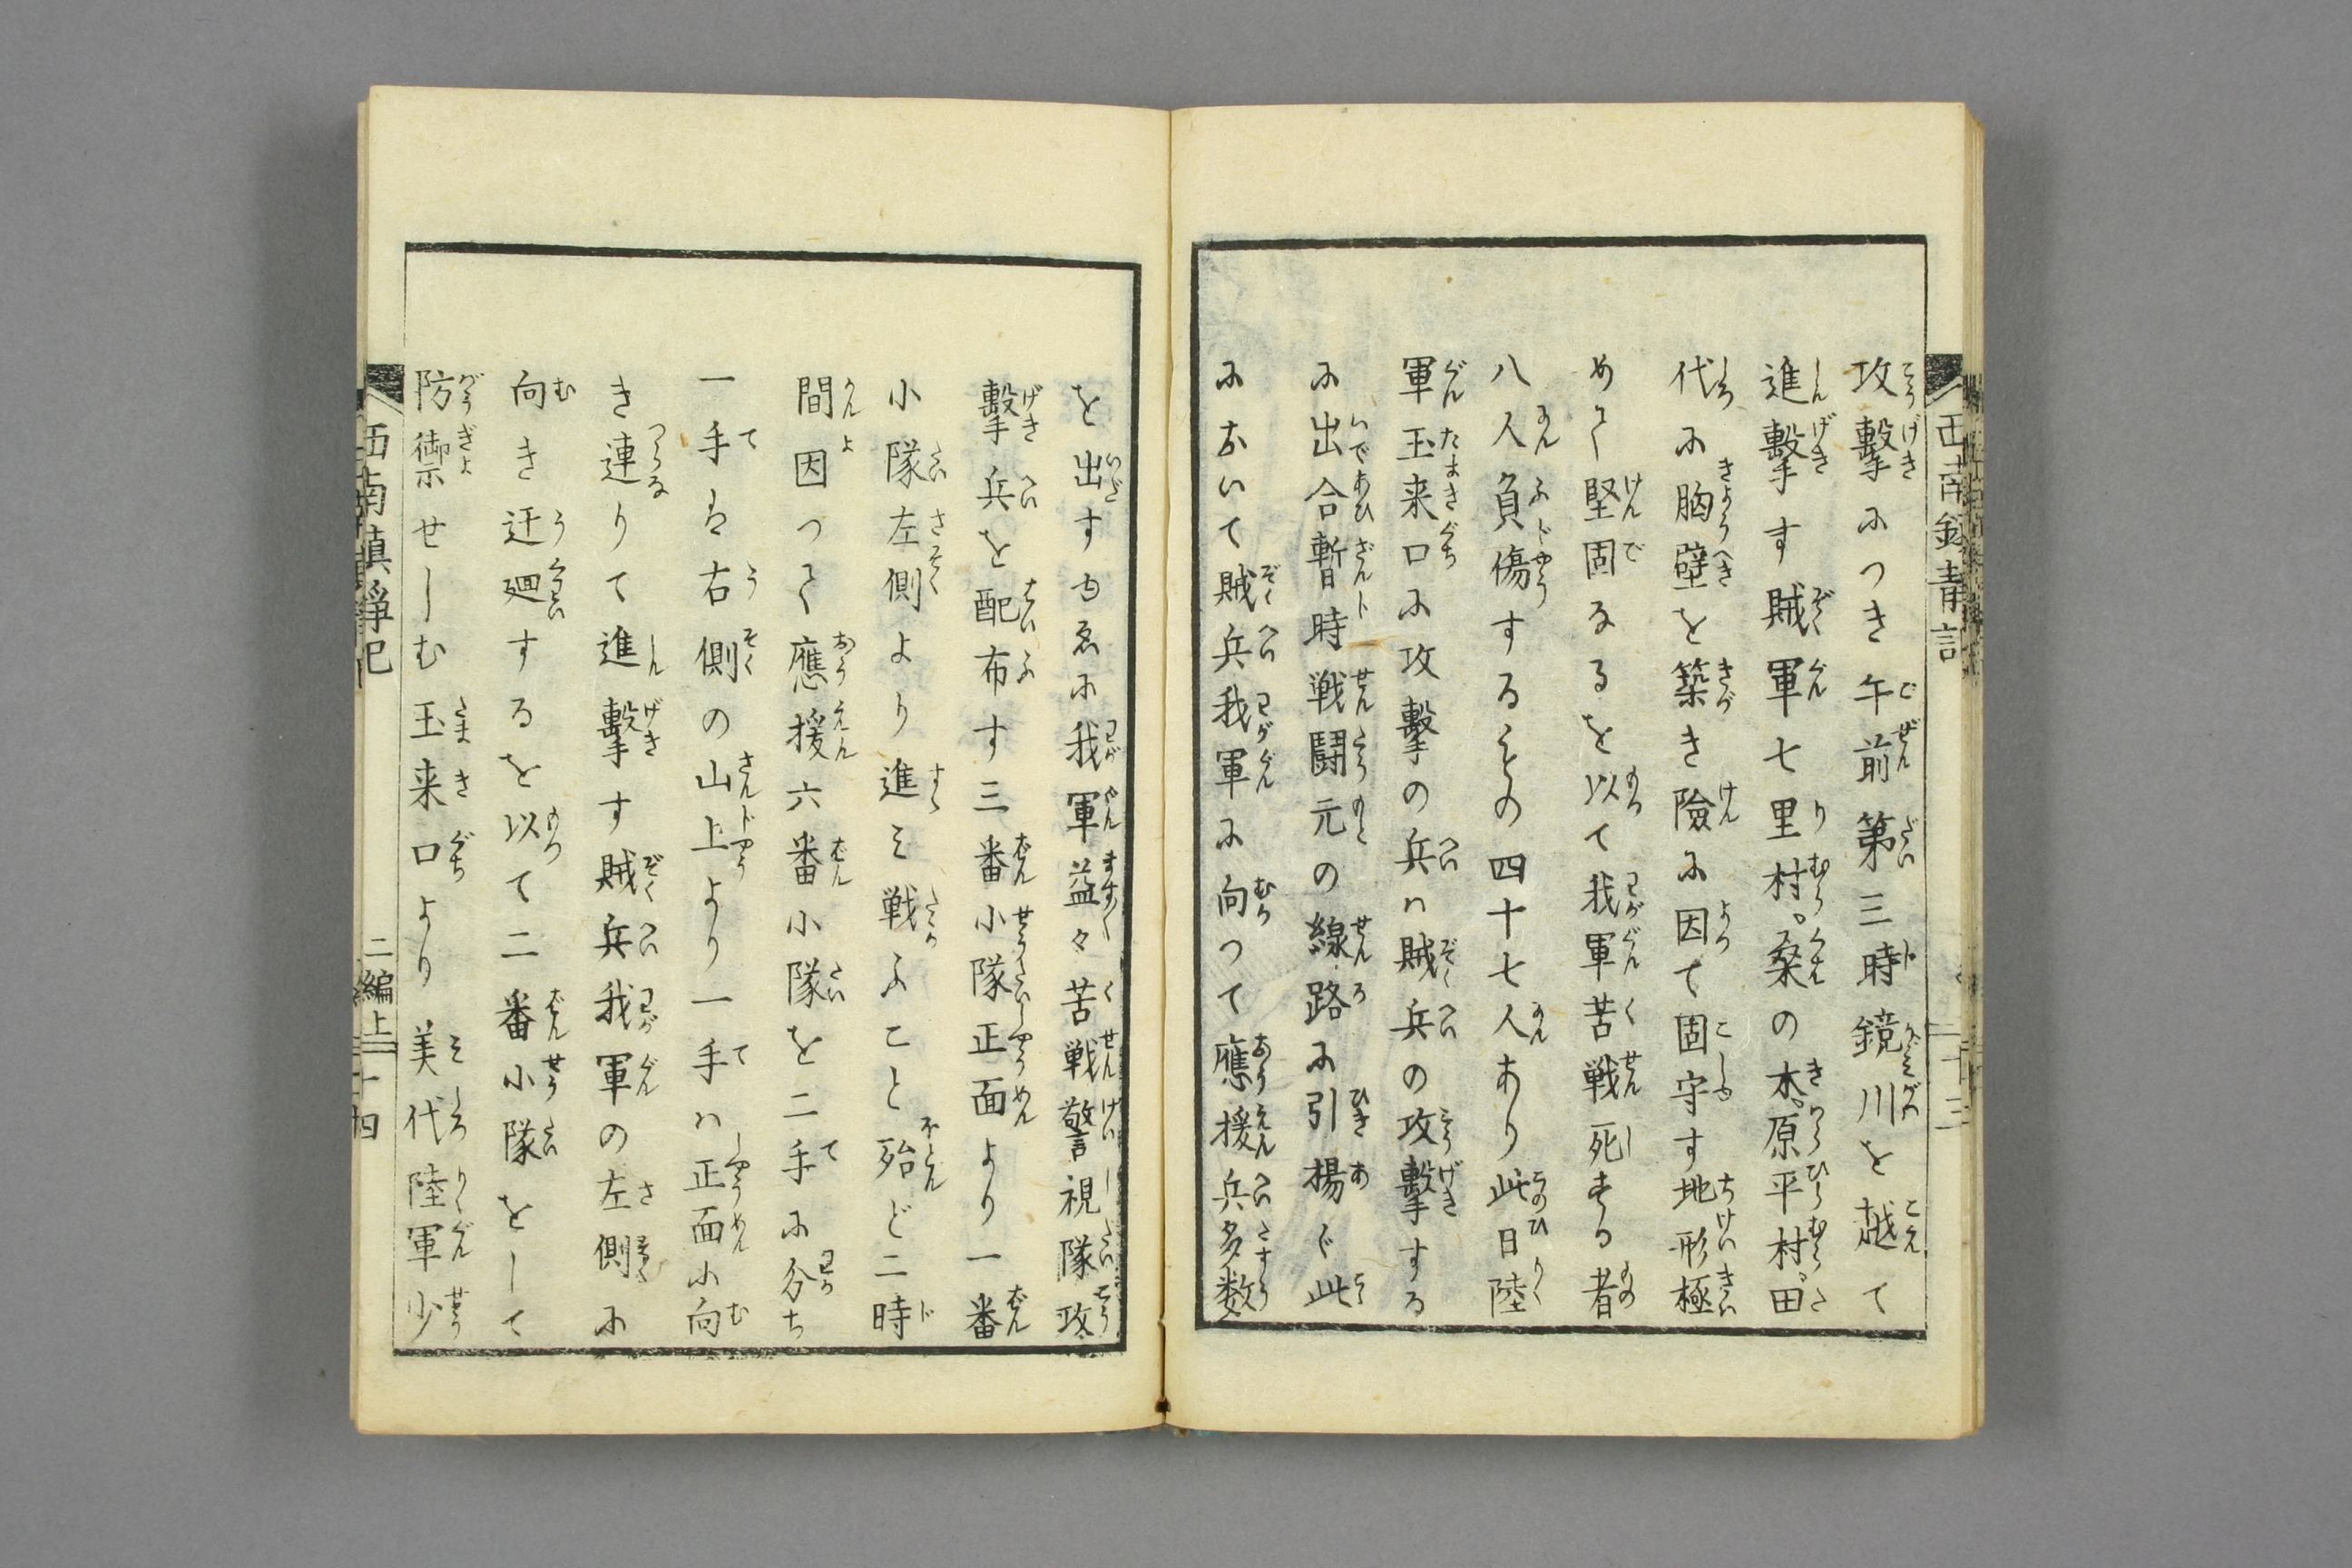 攻撃ふつき午前第三時鏡川を越て
進撃す賊軍七里村。桑の木。原平村。田
代ふ胸壁を築き險ふ因て固守す地形極
めて堅固なるを以て我軍苦戦死する者
八人負傷するもの四十七人あり此日陸
軍玉来口ふ攻撃の兵ハ賊兵の攻撃する
ふ出合暫時戦鬪元の線路ふ引揚ぐ此
ふおいて賊兵我軍ふ向つて應援兵多数
を出すゆゑふ我軍益々苦戦警視隊攻
撃兵を配布す三番小隊正面より一番
小隊左側より進み戦ふこと殆ど二時
間因つて應援六番小隊を二手ふ分ち
一手は右側の山上より一手ハ正面小向
き連りて進撃す賊兵我軍の左側ふ
向き迂廻するを以て二番小隊をして
防御せしむ玉来口より美代陸軍少
西南鎮静記
二編上
十四